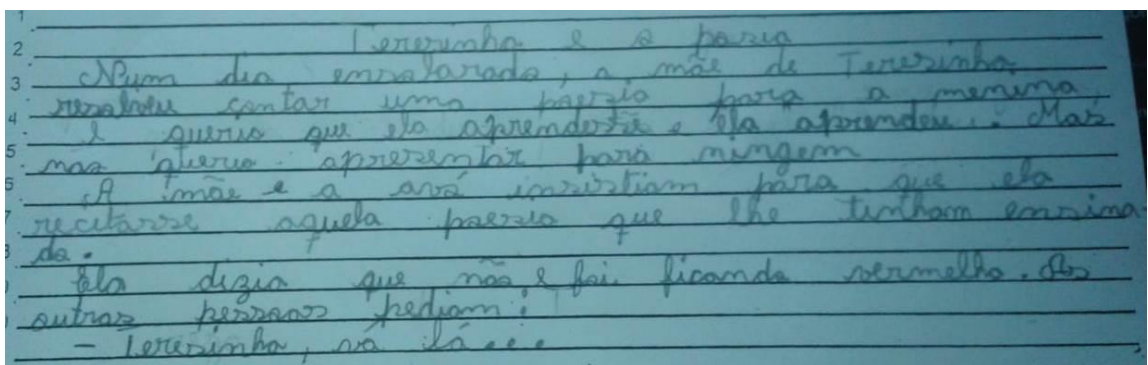 Tererinha e a poesia
Num dia ensolarado, a mãe de Teresinha
resolveu contar uma poesia para a menina
e queria que ela aprendesse e ela aprendeu. Mas
nas queria apresentar para ningem
A mãe e a avó insistiam para que ela
recitasse aquela poessia que lhe tinham ensina
da.
Ela dizia que não e foi ficando vermelha. As
outras pessoas pediam:
- Teresinha, vá lá...